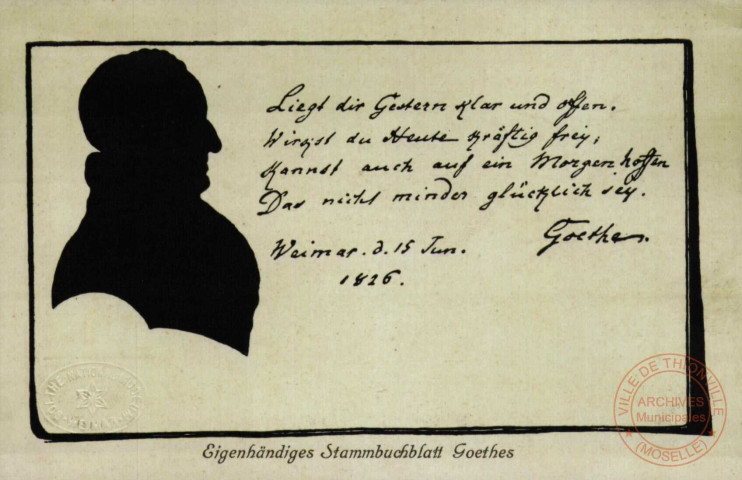 Liegt dir Gestern klar und offen.
Wirkst du Heute kräftig frey,
Kannst auch auf ein Morgen hoffen
Das nicht minder glücklich sey.
Weimar. d. 15 Jun.
1826.
Goethe.
Eigenhändiges Stammbuchblatt Goethes
VILLE DE THIONVILLE
ARCHIVES
Municipales
(MOSELLE)